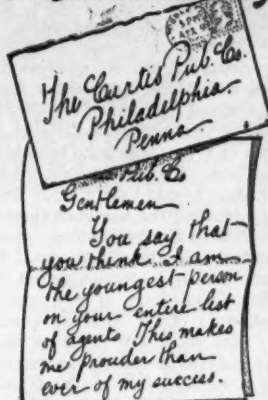 The Curtis Pub. Co.
Philadelphia.
Penna.
Pub. Co
Gentlemen
You say that
you think I am
the youngest person
on your entire list
of agents This makes
me prouder than
ever of my success.